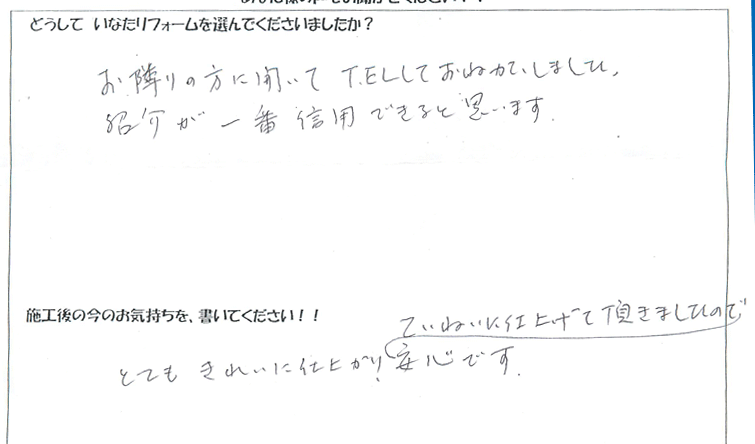 どうして いなたリフォームを選んでくださいましたか？
お隣りの方に聞いて TELしておねがいしました。
紹介が一番信用できると思います。
施工後の今のお気持ちを、書いてください！！
ていねいに仕上げて頂きましたので
とてもきれいに仕上がり、安心です。